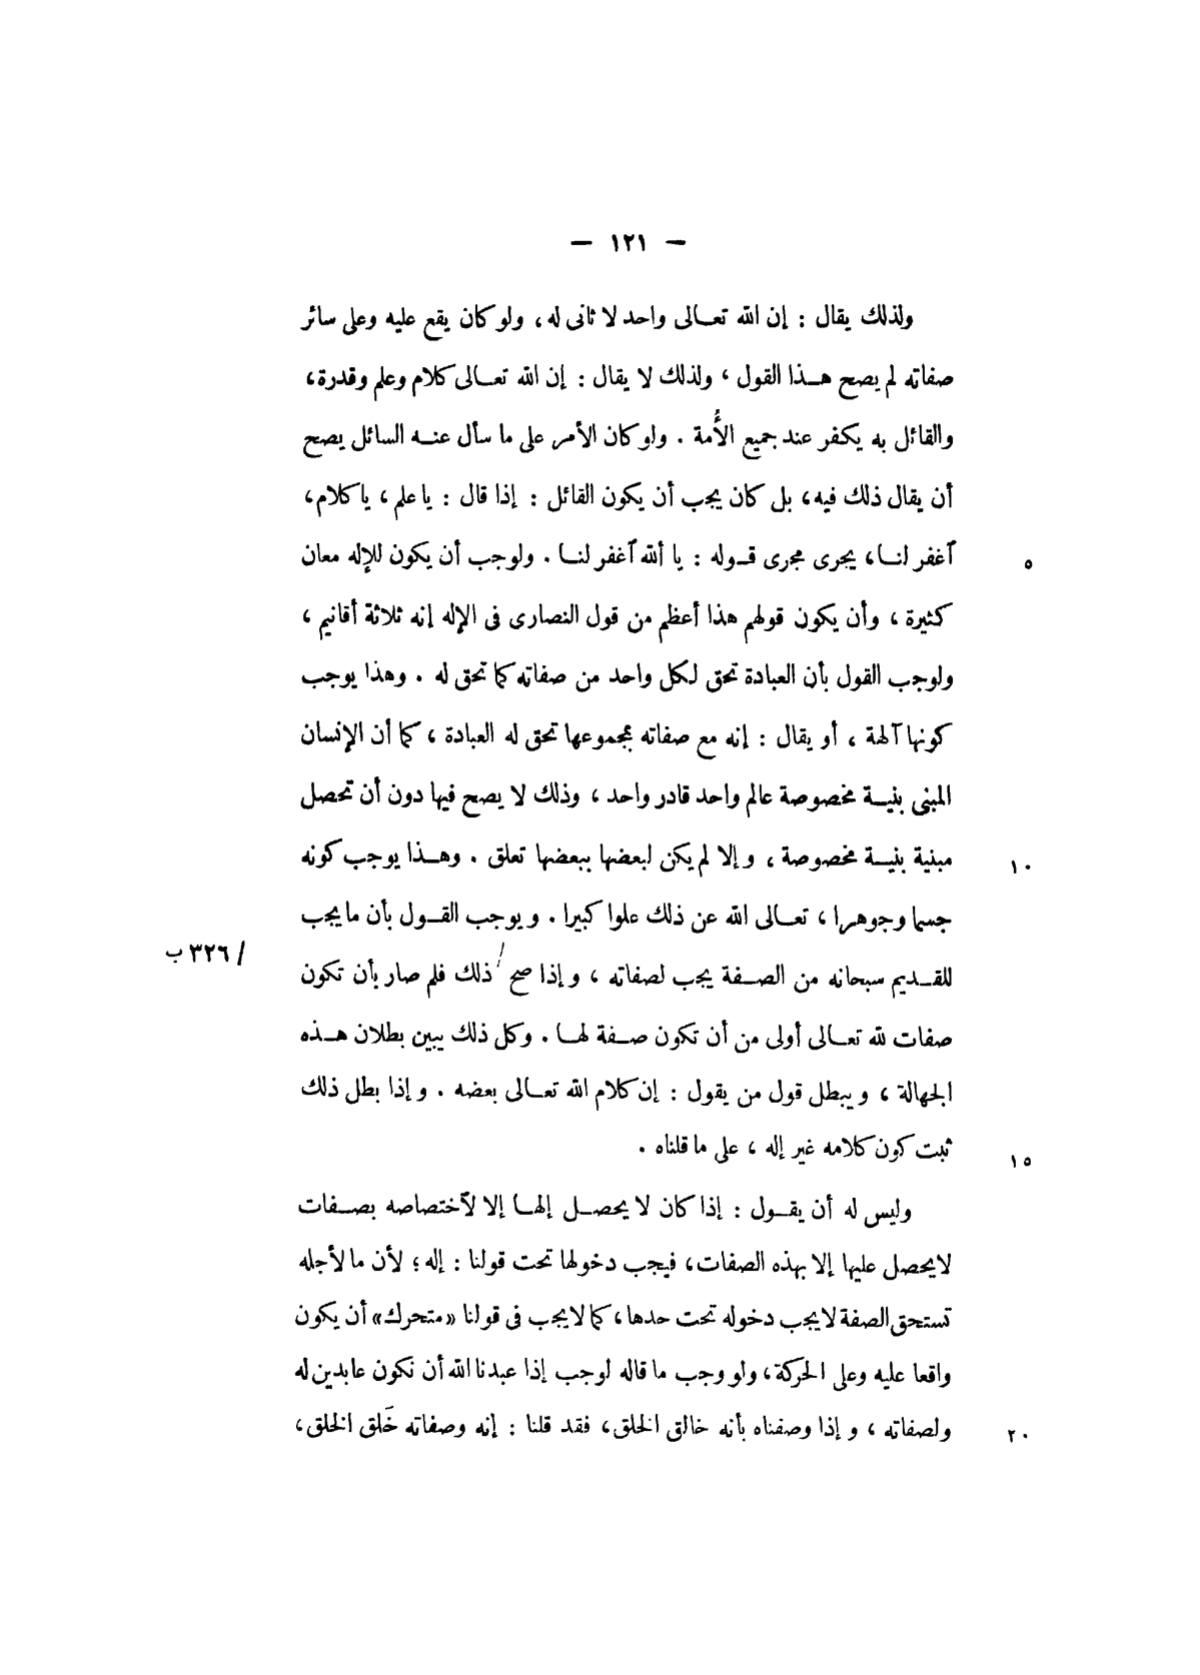 — ١٢١ —
ولذلك يقال : إن الله تعـالى واحد لا ثانى له ، ولو كان يقع عليه وعلى سائر
صفاته لم يصح هـذا القول ، ولذلك لا يقال : إن الله تعـالى كلام وعلم وقدرة،
والقائل به يكفر عند جميع الأُمة . ولو كان الأمر على ما سأل عنـه السائل يصح
أن يقال ذلك فيه ، بل كان يجب أن يكون القائل : إذا قال : يا علم ، يا كلام،
ٱغفر لنـا، يجرى مجرى قـوله : يا ألله ٱغفر لنـا . ولوجب أن يكون للإله معان
٥
كثيرة ، وأن يكون قولهم هذا أعظم من قول النصارى فى الإله إنه ثلاثة أقانيم ،
ولوجب القول بأن العبادة تحق لكل واحد من صفاته كما تحق له . وهذا يوجب
كونها آلهة ، أو يقال : إنه مع صفاته بمجموعها تحق له العبادة ، كما أن الإنسان
المبنى بنيـة مخصوصة عالم واحد قادر واحد ، وذلك لا يصح فيها دون أن تحصل
مبنية بنيـة مخصوصة ، وإلا لم يكن لبعضها ببعضها تعلق . وهـذا يوجب كونه
١٠
جسما وجوهرا ، تعـالى الله عن ذلك علوا كبيرا . ويوجب القـول بأن ما يجب
للقـديم سبحانه من الصـفة يجب لصفاته ، وإذا صح / ذلك فلم صار بأن تكون
/ ٣٢٦ ب
صفات لله تعـالى أولى من أن تكون صـفة لهـا . وكل ذلك يبين بطلان هـذه
الجهالة ، ويبطل قول من يقول : إن كلام الله تعـالى بعضه . وإذا بطل ذلك
ثبت كون كلامه غير إله ، على ما قلناه .
١٥
وليس له أن يقـول : إذا كان لا يحصـل إلهـا إلا لٱختصاصه بصـفات
لا يحصل عليها إلا بهذه الصفات، فيجب دخولها تحت قولنا : إله ؛ لأن ما لأجله
تستحق الصفة لا يجب دخوله تحت حدها، كما لا يجب فى قولنا «متحرك» أن يكون
واقعا عليه وعلى الحركة، ولو وجب ما قاله لوجب إذا عبدنا الله أن نكون عابدين له
ولصفاته ، وإذا وصفناه بأنه خالق الخلق، فقد قلنا : إنه وصفاته خَلق الخلق،
٢٠